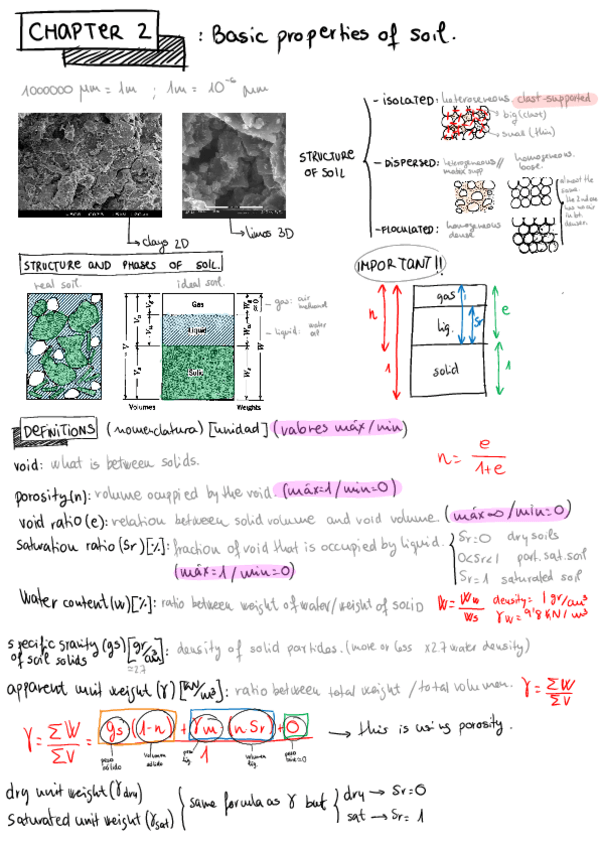 CHAPTER 2 : Basic properties of soil.
1000000 μm = 1m ; 1m = 10⁻⁶ μm
STRUCTURE OF SOIL
- ISOLATED: heterogeneous clast-supported
big (clast)
small (thin)
- DISPERSED: heterogeneous // matrix supp
homogeneous loose.
- FLOCULATED: homogeneous dense
almost the same.
clays 2D
limos 3D
STRUCTURE AND PHASES OF SOIL.
IMPORTANT!!
real soil.
ideal soil.
Gas
Liquid
Solid
Volumes
Weights
- gas: air
methanol
- liquid: water
oil
gas
liq.
solid
n
1
Sr
e
1
DEFINITIONS (nomenclatura) [unidad] (valores máx/min)
void: what is between solids.
n = e / 1+e
porosity (n): volume ocupied by the void. (máx=1/min=0)
void ratio (e): relation between solid volume and void volume. (máx=∞/min=0)
saturation ratio (Sr) [%]: fraction of void that is occupied by liquid.
(máx=1/min=0)
Sr=0 dry soils
0<Sr<1 part. sat. soil
Sr=1 saturated soil
Water content (w) [%]: ratio between weight of water/weight of solid
W = Ww / Ws
density = 1 gr/cm³
γw = 9'8 kN/m³
specific gravity (gs) [gr/cm³]: density of solid particles. (more or less x2.7 water density)
of soil solids
≈2.7
apparent unit weight (γ) [kN/m³]: ratio between total weight / total volumen.
γ = ΣW / ΣV
γ = ΣW / ΣV = gs (1-n) + γw (n Sr) + 0 / 1 → this is using porosity.
peso sólido
volumen sólido
peso liq.
volumen liq.
dry unit weight (γdry)
saturated unit weight (γsat)
same formula as γ but
dry → Sr=0
sat → Sr=1